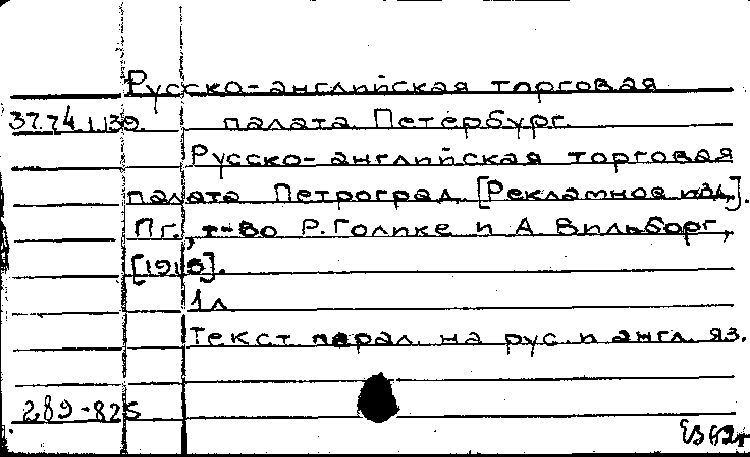 Русско-английская торговая
37.74.1.139. палата. Петербург.
Русско-английская торговая
палата. Петроград. [Рекламное изд.].
Пг., т-во Р. Голике и А. Вильборг,
[1915].
1 л.
Текст парал. на рус. и англ. яз.
289-825